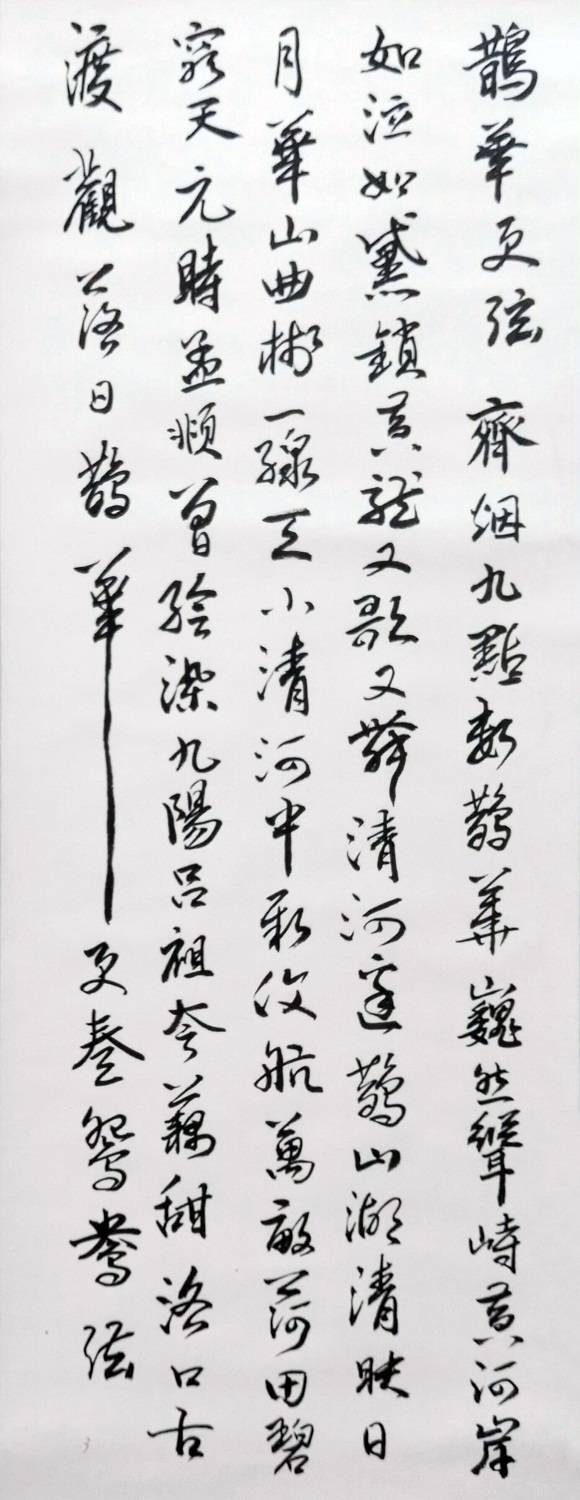 鵲華更弦 齊烟九點數鵲華巍然聳峙黃河岸
如泣如黛鎖黃龍又歌又舞清河邊鵲山湖清映日
月華山曲彬一線天小清河中新復航萬畝荷田碧
窮天元時孟順曾繪染九陽呂祖夸藕甜洛口古
渡觀落日鵲華更奏鴛鴦弦